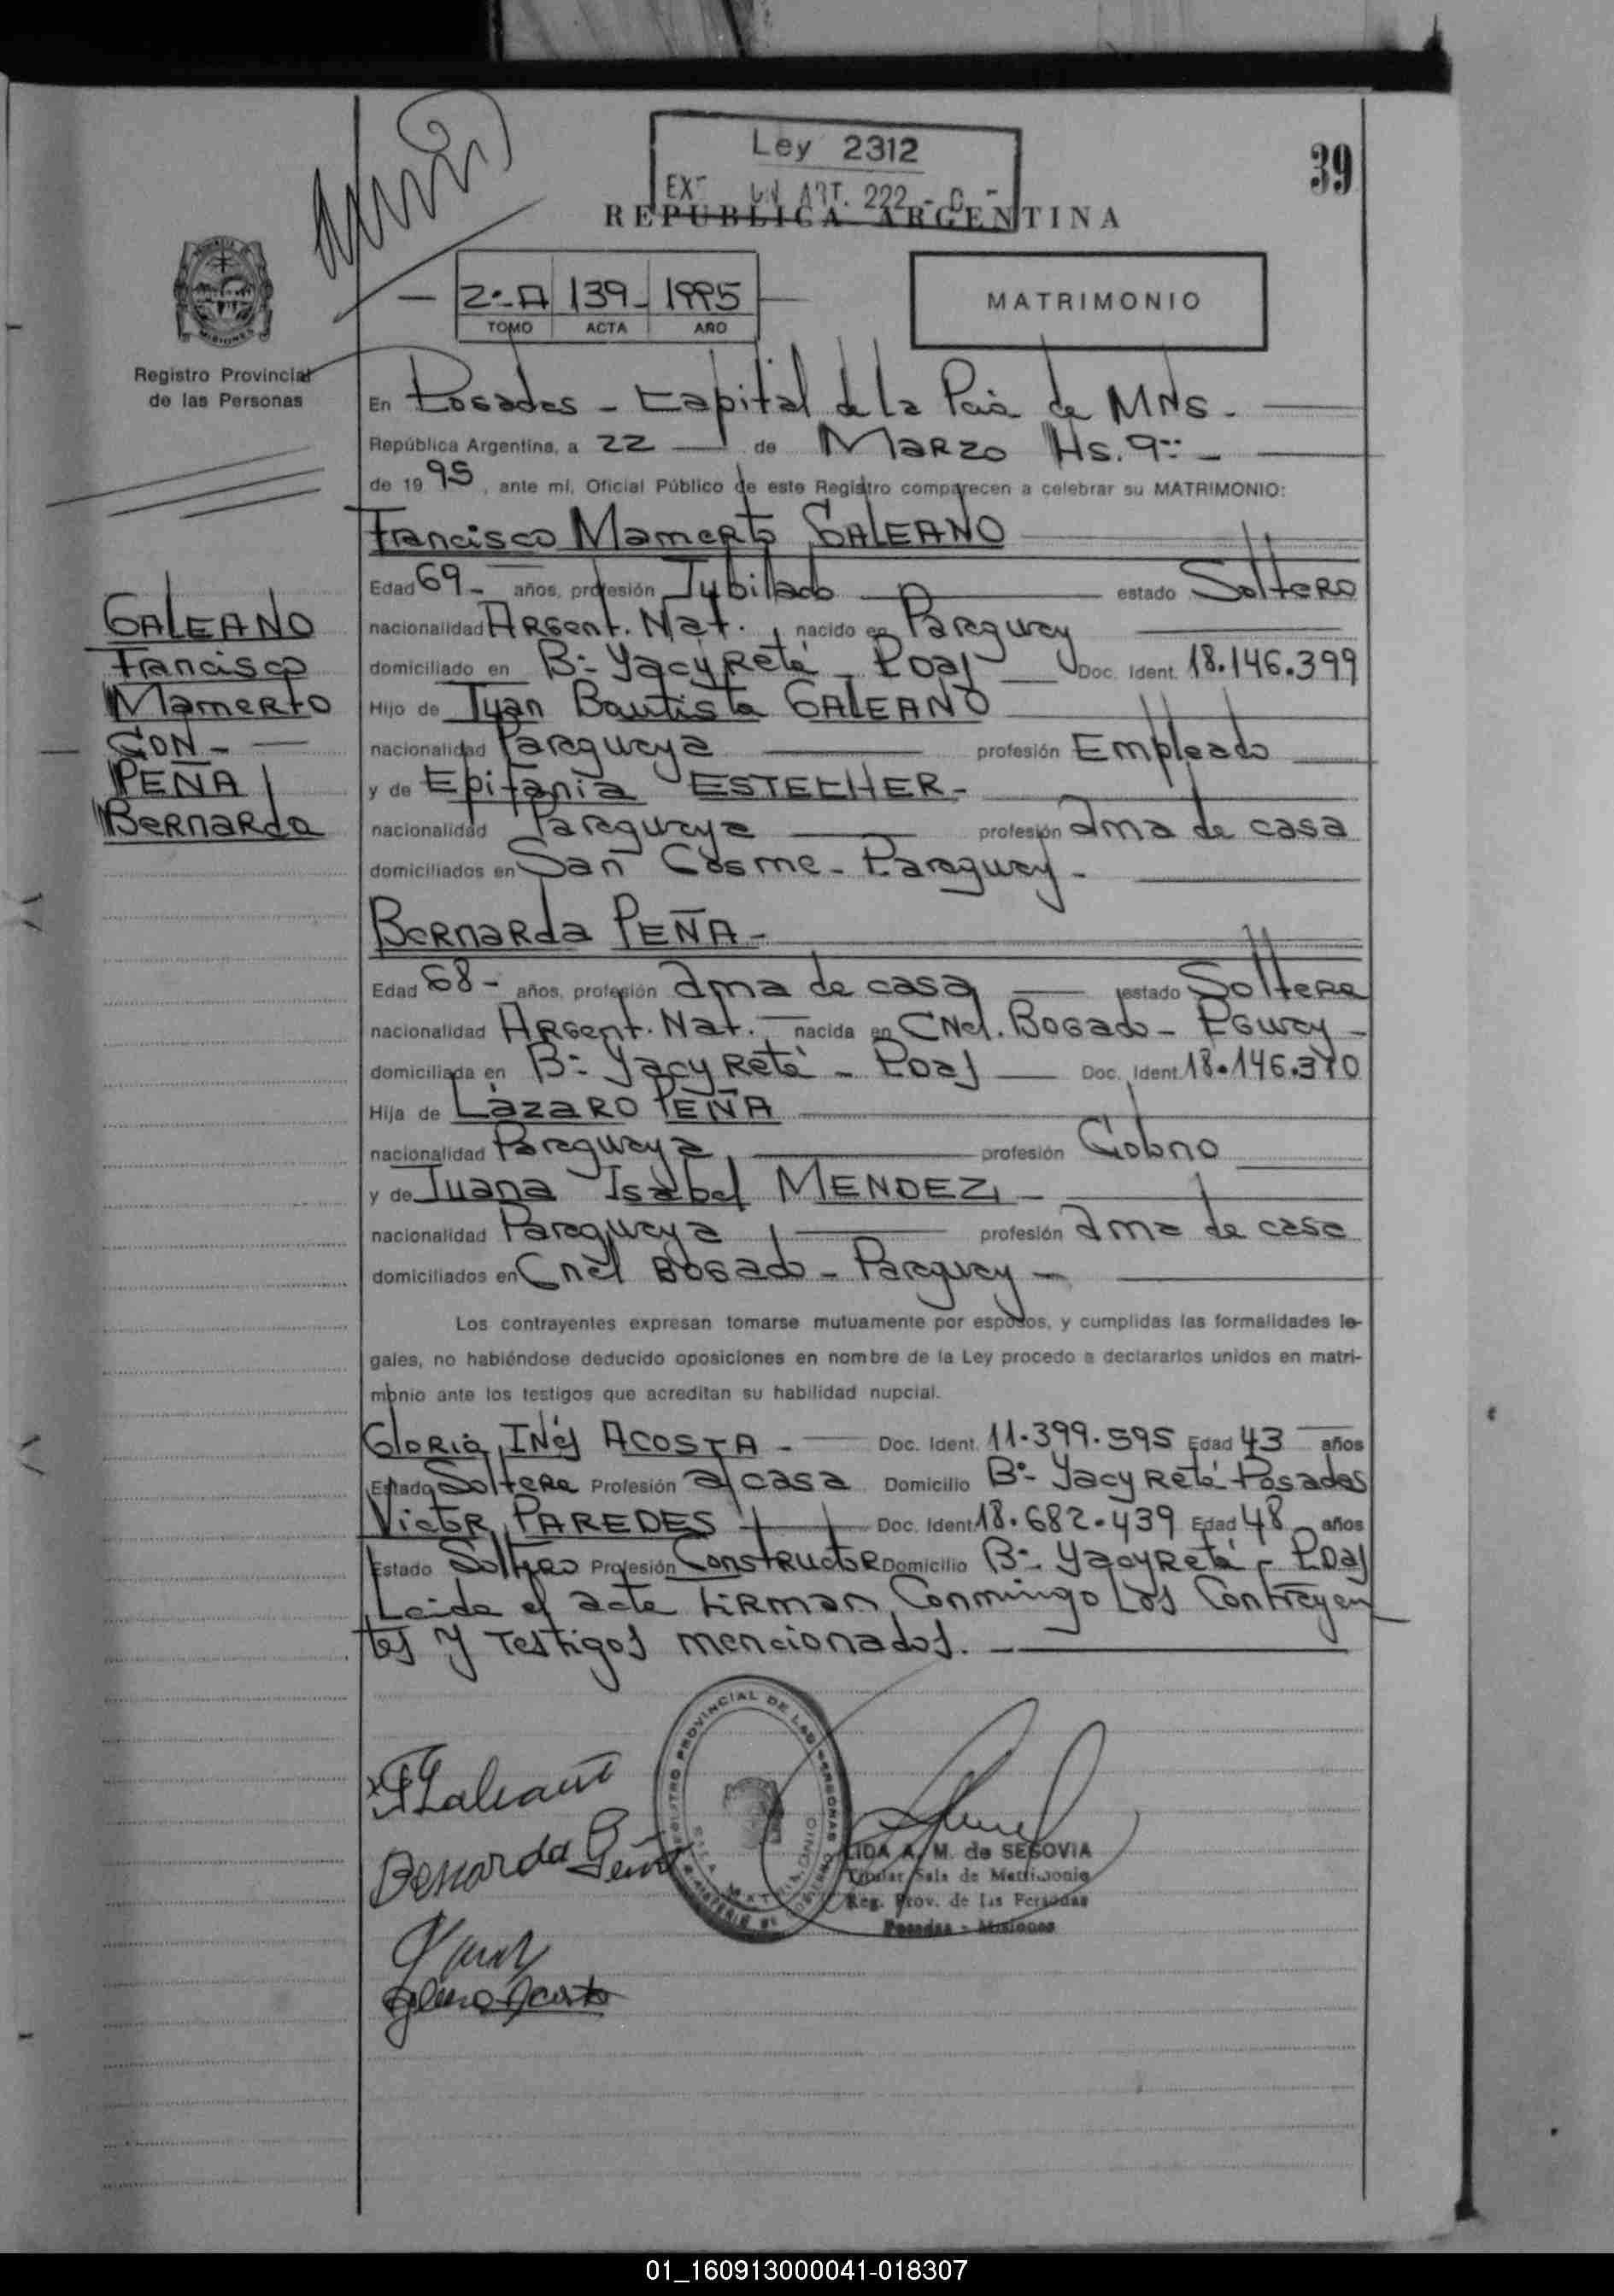 Ley 2312
ART. 222
39
REPUBLICA ARGENTINA
2º-A 139- 1995
TOMO ACTA AÑO
MATRIMONIO
Registro Provincial
de las Personas
En Posadas - Capital de la Pcia de MNS.
República Argentina, a 22 de Marzo Hs. 9:-
de 1995, ante mí, Oficial Público de este Registro comparecen a celebrar su MATRIMONIO:
Francisco Mamerto GALEANO
Edad 69- años, profesión Jubilado estado Soltero
nacionalidad Argent. Nat. nacido en Paraguay
domiciliado en Bº- Yacyretá - Pdas Doc. Ident. 18.146.399
Hijo de Juan Bautista GALEANO
nacionalidad Paraguaya profesión Empleado
y de Epifania ESTECHER-
nacionalidad Paraguaya profesión ama de casa
domiciliados en San Cosme - Paraguay-
GALEANO
Francisco
Mamerto
CON-
PEÑA
Bernarda
Bernarda PEÑA-
Edad 68- años, profesión ama de casa estado Soltera
nacionalidad Argent. Nat. nacida en CNel. Bogado - Pguay-
domiciliada en Bº- Yacyretá - Pdas Doc. Ident. 18.146.370
Hija de Lázaro PEÑA
nacionalidad Paraguaya profesión
y de Juana Isabel MENDEZ-
nacionalidad Paraguaya profesión ama de casa
domiciliados en Cnel Bogado - Paraguay-
Los contrayentes expresan tomarse mutuamente por esposos, y cumplidas las formalidades le-
gales, no habiéndose deducido oposiciones en nombre de la Ley procedo a declararlos unidos en matri-
monio ante los testigos que acreditan su habilidad nupcial.
Gloria Inés ACOSTA- Doc. Ident. 11.399.595 Edad 43 años
Estado Soltera Profesión a/casa Domicilio Bº- Yacyretá Posadas
Victor PAREDES Doc. Ident. 18.682.439 Edad 48 años
Estado Soltero Profesión Constructor Domicilio Bº- Yacyretá - Pdas
Leida el acta firman Conmingo los Contrayen
tes y testigos mencionados.
REGISTRO PROVINCIAL DE LAS PERSONAS
F Galeano
Bernarda Peña
LIDA A. M. de SEGOVIA
Titular Sala de Matrimonio
Reg. Prov. de las Personas
Posadas - Misiones
01_160913000041-018307